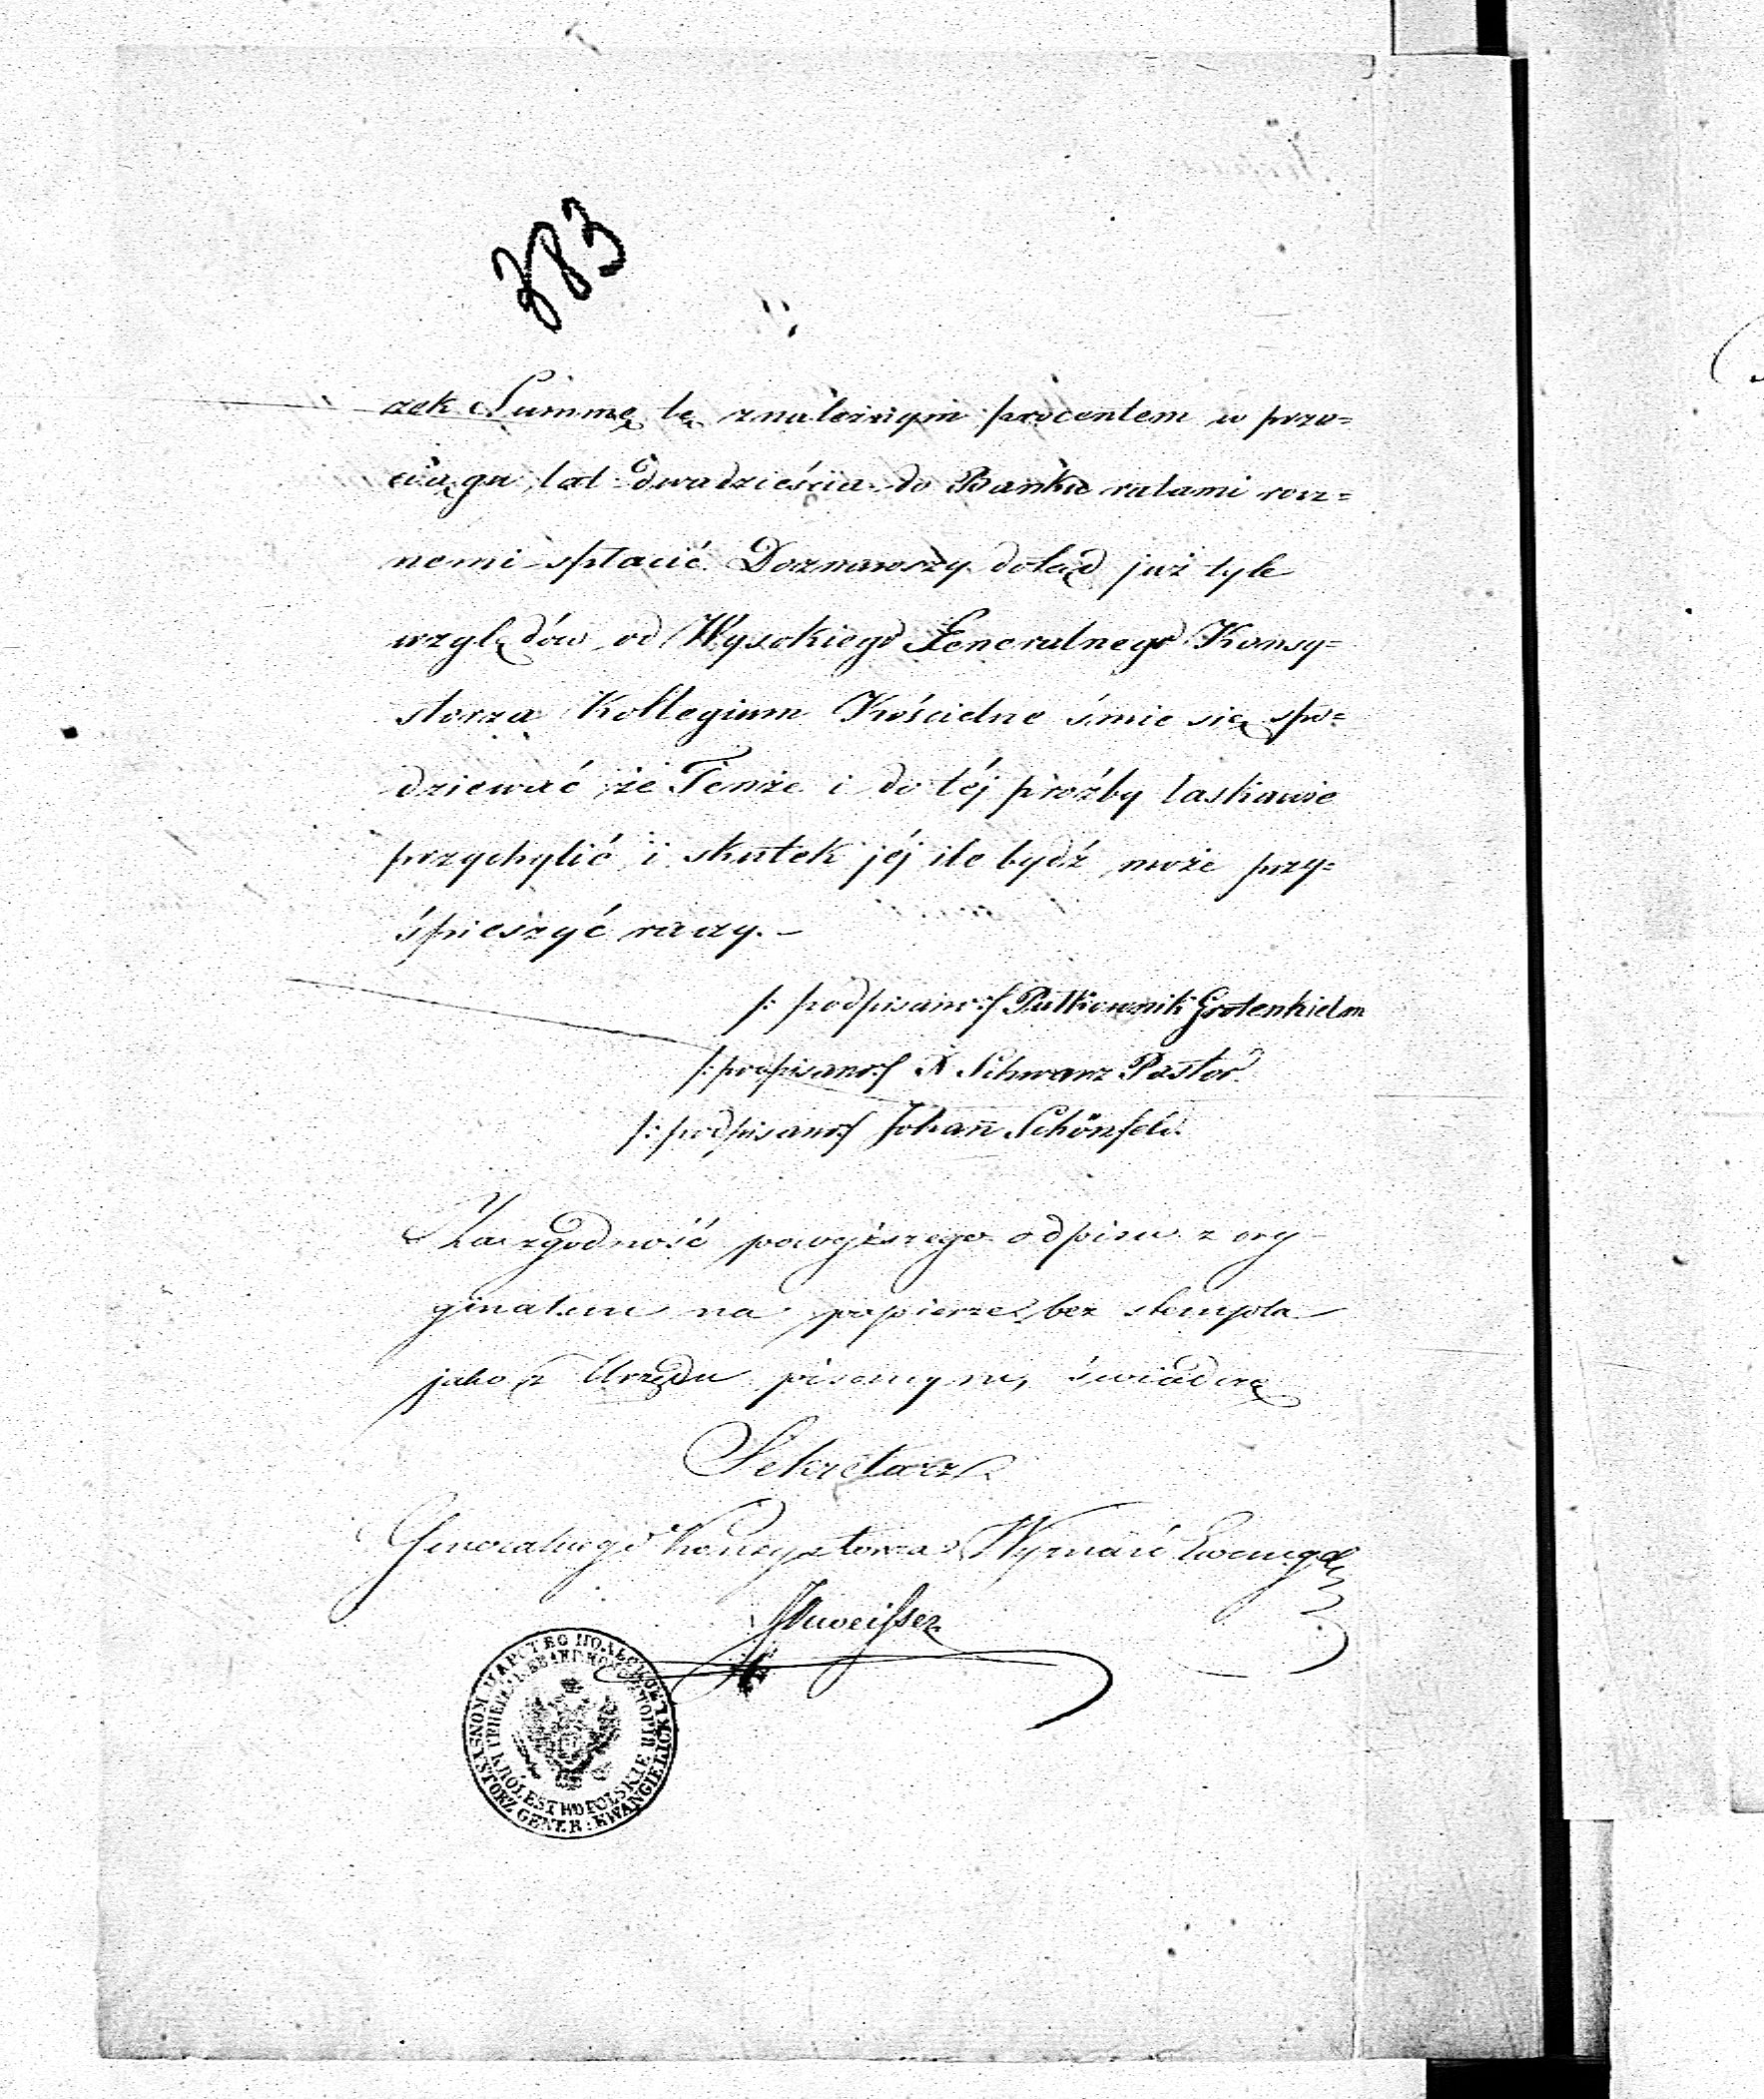 383
zek Summę tę z należnym procentem w prze=
ciągu lat dwadzieścia do Banku ratami rocz=
nemi spłacić. Doznawszy dotąd już tyle
względów od Wysokiego Generalnego Konsy=
storza Kollegium Kościelne śmie się spo=
dziewać że Tenże i do téj proźby łaskawie
przychylić i skutek jéj ile bydź może przy=
śpieszyć raczy. –
/: podpisano :/ Pułkownik Grotenhielm
/: podpisano :/ X Schwarz Pastor
/: podpisano :/ Johann Schönfeld.
Za zgodność powyższego odpisu z ory-
ginałem na papierze bez stempla
jako z Urzędu pisanym, świadczę
Sekretarz
Generalnego Konsystorza Wyznań Ewangel.
ЦАРСТВО ПОЛЬСКОЕ
KONSYSTORZ GENER: EWANGIELICKI
KRÓLESTWO POLSKIE